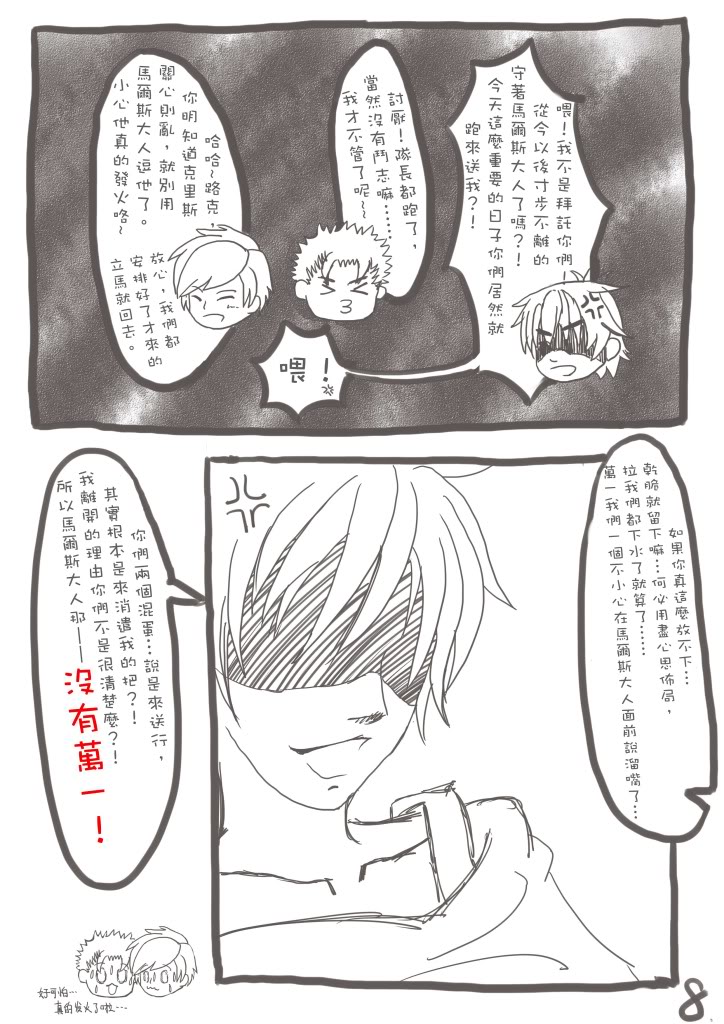 喂！我不是拜託你們，
從今以後寸步不離的
守著馬爾斯大人了嗎？！
今天這麼重要的日子你們居然就
跑來送我？！
討厭！隊長都跑了，
當然沒有鬥志嘛……
我才不管了呢～
喂！
哈哈～路克，
你明知道克里斯
關心則亂，就別用
馬爾斯大人逗他了。
小心他真的發火咯～
放心，我們都
安排好了才來的
立馬就回去。
如果你真這麼放不下…
乾脆就留下嘛…何必用盡心思佈局，
拉我們都下水了就算了……
萬一我們一個不小心在馬爾斯大人面前說溜嘴了…
你們兩個混蛋…說是來送行，
其實根本是來消遣我的把？！
我離開的理由你們不是很清楚麼？！
所以馬爾斯大人那——沒有萬一！
好可怕…
真的发火了啦…
8